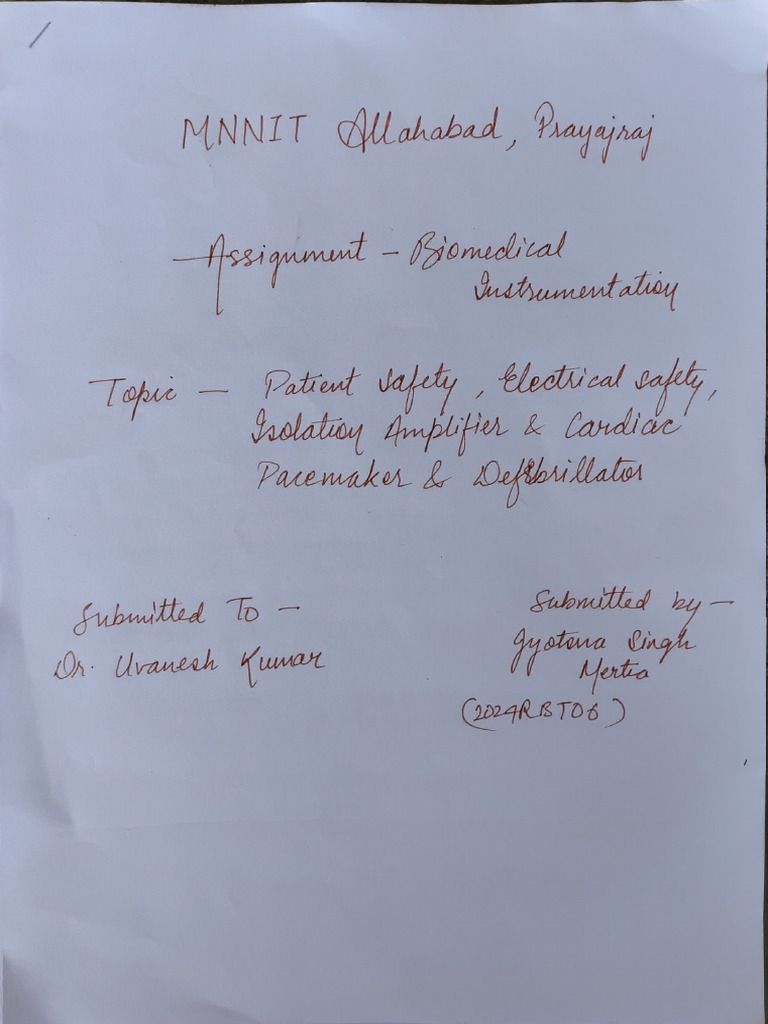 MNNIT Allahabad, Prayajraj
Assignment - Biomedical
Instrumentation
Topic - Patient safety, Electrical safety,
Isolation Amplifier & Cardiac
Pacemaker & Defibrillator
Submitted To -
Dr. Uvanesh Kumar
Submitted by -
Jyotsna Singh
Mertia
(2024RBT06)